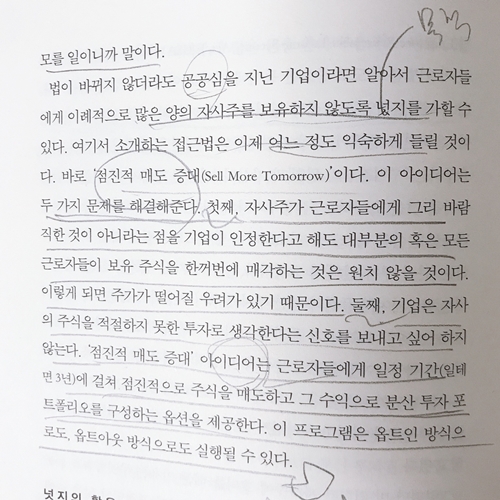 모를 일이니까 말이다.
법이 바뀌지 않더라도 공공심을 지닌 기업이라면 알아서 근로자들
에게 이례적으로 많은 양의 자사주를 보유하지 않도록 넛지를 가할 수
있다. 여기서 소개하는 접근법은 이제 어느 정도 익숙하게 들릴 것이
다. 바로 '점진적 매도 증대(Sell More Tomorrow)'이다. 이 아이디어는
두 가지 문제를 해결해준다. 첫째, 자사주가 근로자들에게 그리 바람
직한 것이 아니라는 점을 기업이 인정한다고 해도 대부분의 혹은 모든
근로자들이 보유 주식을 한꺼번에 매각하는 것은 원치 않을 것이다.
이렇게 되면 주가가 떨어질 우려가 있기 때문이다. 둘째, 기업은 자사
의 주식을 적절하지 못한 투자로 생각한다는 신호를 보내고 싶어 하지
않는다. '점진적 매도 증대' 아이디어는 근로자들에게 일정 기간(일테
면 3년)에 걸쳐 점진적으로 주식을 매도하고 그 수익으로 분산 투자 포
트폴리오를 구성하는 옵션을 제공한다. 이 프로그램은 옵트인 방식으
로도, 옵트아웃 방식으로도 실행될 수 있다.
넛지의